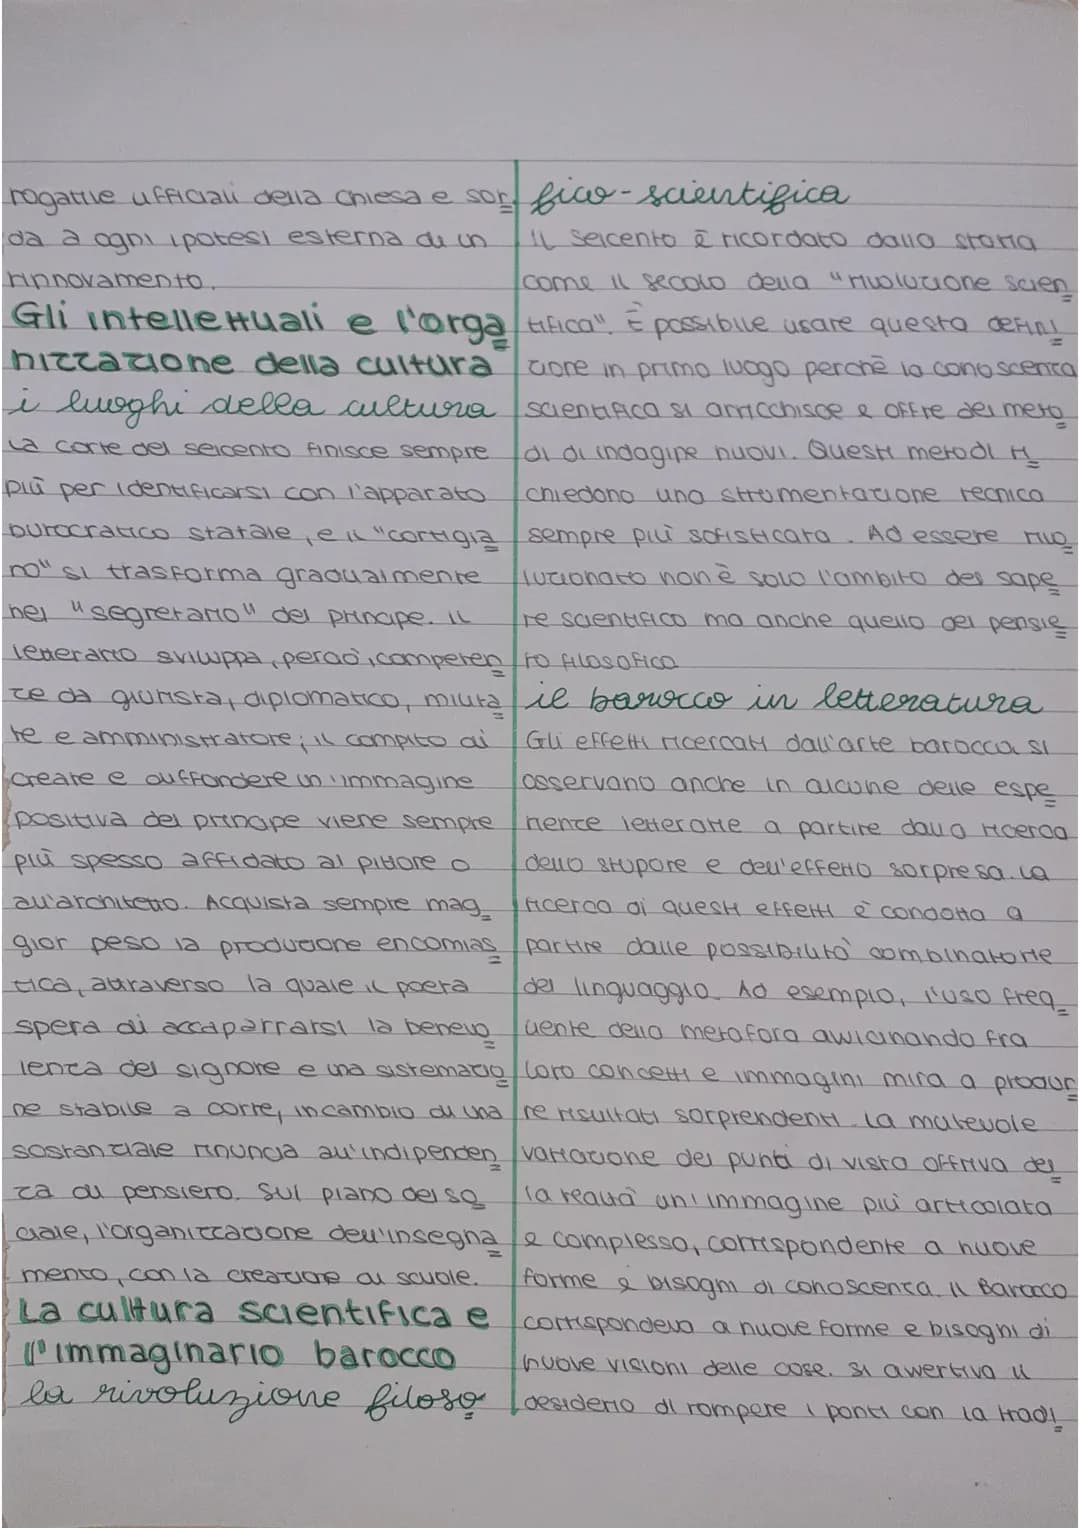 rogative ufficiali della chiesa e sor
da a ogni ipotesi esterna di un
rinnovamento.
Gli intellettuali e l'orga
nizzazione della cultura
i luoghi della cultura
La corte del seicento finisce sempre
più per identificarsi con l'apparato
burocratico statale, e il "cortigia
no" si trasforma gradualmente
nel "segretario" del principe. Il
letterario sviluppa, perciò, competen
ze da giurista, diplomatico, milita
re e amministratore; il compito di
creare e diffondere un'immagine
positiva del principe viene sempre
più spesso affidato al pittore o
all'architetto. Acquista sempre mag
gior peso la produzione encomias
tica, attraverso la quale il poeta
spera di accaparrarsi la benevo
lenza del signore e una sistemazio
ne stabile a corte, in cambio di una
sostanziale rinuncia all'indipenden
za di pensiero. Sul piano del so
ciale, l'organizzazione dell'insegna
mento, con la creazione di scuole.
La cultura scientifica e
l'immaginario barocco
la rivoluzione filoso
fico-scientifica
Il seicento è ricordato dalla storia
come il secolo della "rivoluzione scien
tifica". È possibile usare questa defini
zione in primo luogo perchè la conoscenza
scientifica si arricchisce e offre dei meto
di di indagine nuovi. Questi metodi ri
chiedono una strumentazione tecnica
sempre più sofisticata. Ad essere rivo
luzionato non è solo l'ambito del sape
re scientifico ma anche quello del pensie
ro filosofico
il barocco in letteratura
Gli effetti ricercati dall'arte barocca si
osservano anche in alcune delle espe
rienze letterarie a partire dalla ricerca
dello stupore e dell'effetto sorpresa. La
ricerca di questi effetti è condotta a
partire dalle possibilità combinatorie
del linguaggio. Ad esempio, l'uso freq
uente della metafora avvicinando fra
loro concetti e immagini mira a produr
re risultati sorprendenti. La mutevole
variazione dei punti di vista offriva del
la realtà un'immagine più articolata
e complessa, corrispondente a nuove
forme e bisogni di conoscenza. Il Barocco
corrispondeva a nuove forme e bisogni di
nuove visioni delle cose. Si avvertiva il
desiderio di rompere i ponti con la tradi